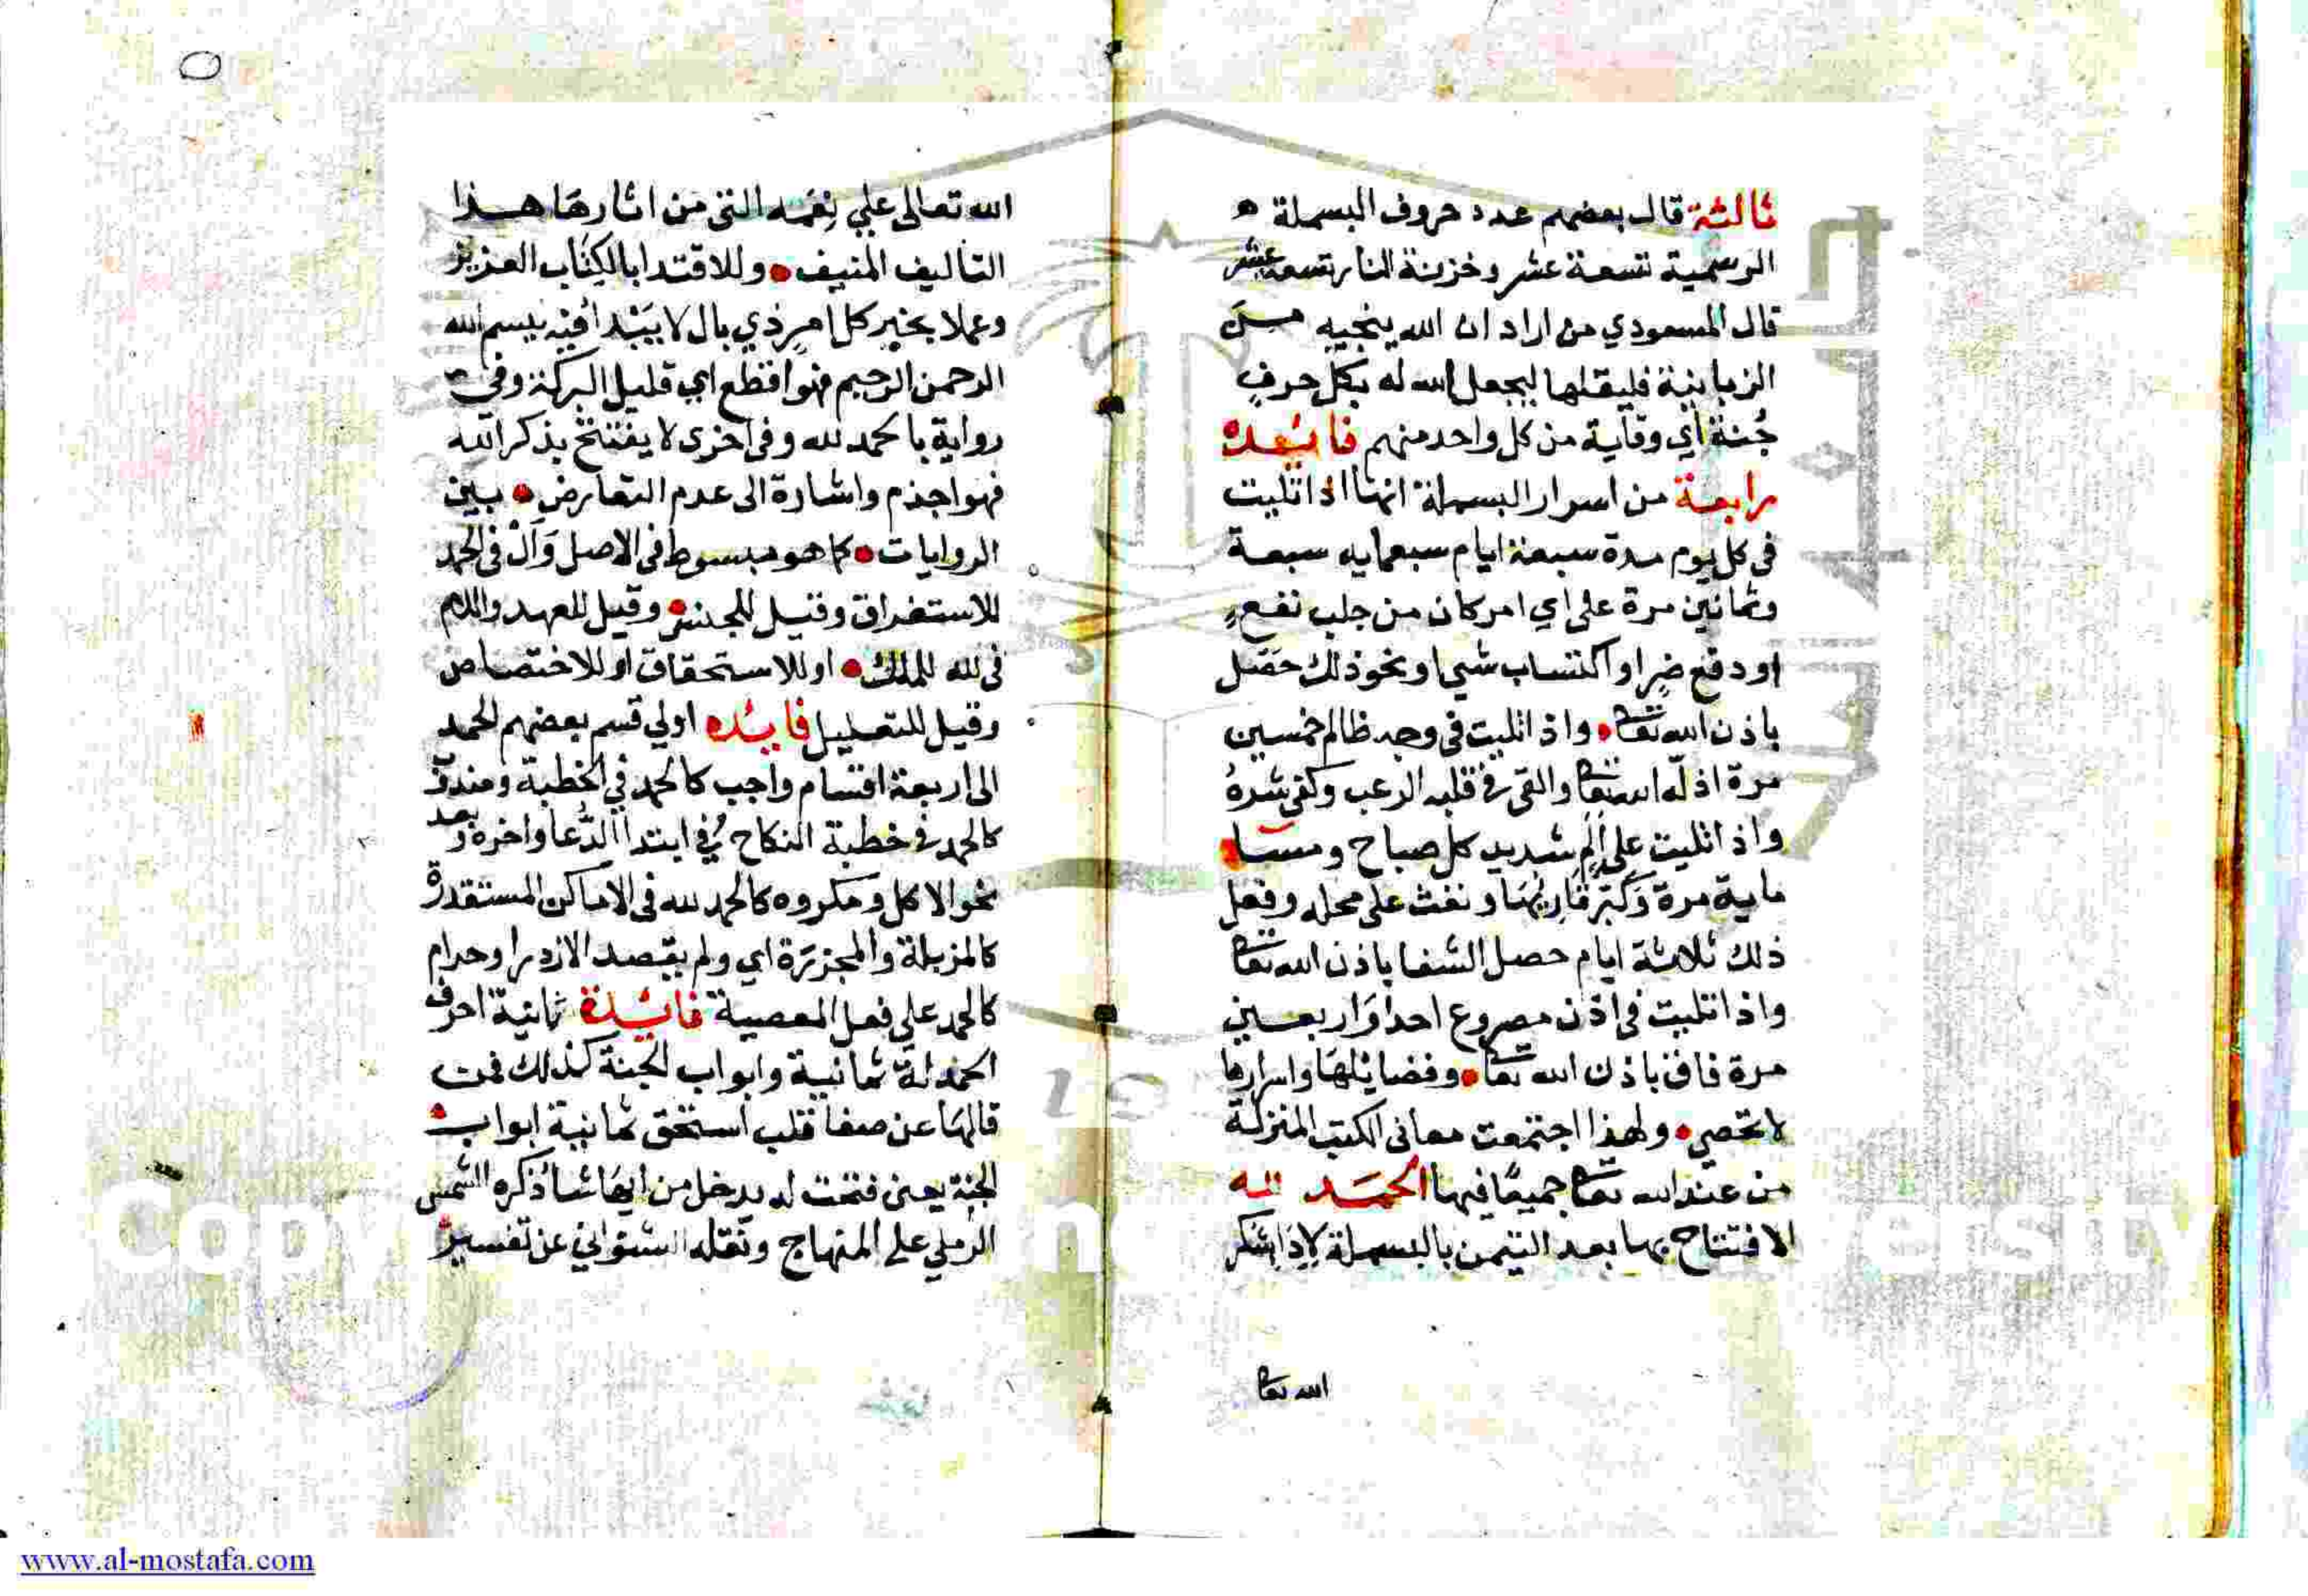 ثالثة قال بعضهم عدد حروف البسملة
الرسمية تسعة عشر وخزنة النار تسعة عشر
قال المسعودي من اراد ان الله ينجيه من
الزبانية فليقلها ليجعل الله له بكل حرف
جُنة اي وقاية من كل واحد منهم فائدة
رابعة من اسرار البسملة انها اذا تليت
في كل يوم مدة سبعة ايام سبعماية سبعة
وثمانين مرة على اي امر كان من جلب نفع
او دفع ضر او اكتساب شي او نحو ذلك حصل
باذن الله تعا واذا تليت في وجه ظالم خمسين
مرة اذله الله تعا والقى في قلبه الرعب وكفى شره
واذا تليت على الم شديد كل صباح ومسا
ماية مرة وكبر قاريها ونفث على محله وفعل
ذلك ثلاثة ايام حصل الشفا باذن الله تعا
واذا تليت في اذن مصروع احدا واربعين
مرة فاق باذن الله تعا وفضائلها واسرارها
لا تحصي ولهذا اجتمعت معانى الكتب المنزلة
من عند الله تعا جميعًا فيها الحمد لله
الافتتاح بها بعد التيمن بالبسملة لاداء شكر
الله تعا
الله تعالى علي نعمه التى من اثارها هذا
التاليف المنيف وللاقتدا بالكتاب العزيز
وعملا بخبر كل امر ذي بال لا يبتدا فيه ببسم الله
الرحمن الرحيم فهو اقطع اي قليل البركة وفي
رواية بالحمد لله وفى اخرى لا يفتتح بذكر الله
فهو اجذم واشارة الى عدم التعارض بين
الروايات كما هو مبسوط فى الاصل وَاَلْ فى الحمد
للاستغراق وقيل للجنس وقيل للعهد واللام
فى لله للملك او للاستحقاق او للاختصاص
وقيل للتعليل فايده اولي قسم بعضهم الحمد
الى اربعة اقسام واجب كالحمد في الخطبة ومندوب
كالحمد فى خطبة النكاح وفي ابتدا الدُّعا واخره وبعد
نحو الاكل ومكروه كالحمد لله فى الاماكن المستقذرة
كالمزبلة والمجزرة اي ولم يقصد الازدرا وحرام
كالحمد على فعل المعصية فائدة ثمانية احرف
الحمد لله ثمانية وابواب الجنة كذلك فمن
قالها عن صفا قلب استحق ثمانية ابواب
الجنة يعنى فتحت له يدخل من ايها شا ذكره الشمس
الرملي على المنهاج ونقله الشنواني عن تفسير
www.al-mostafa.com